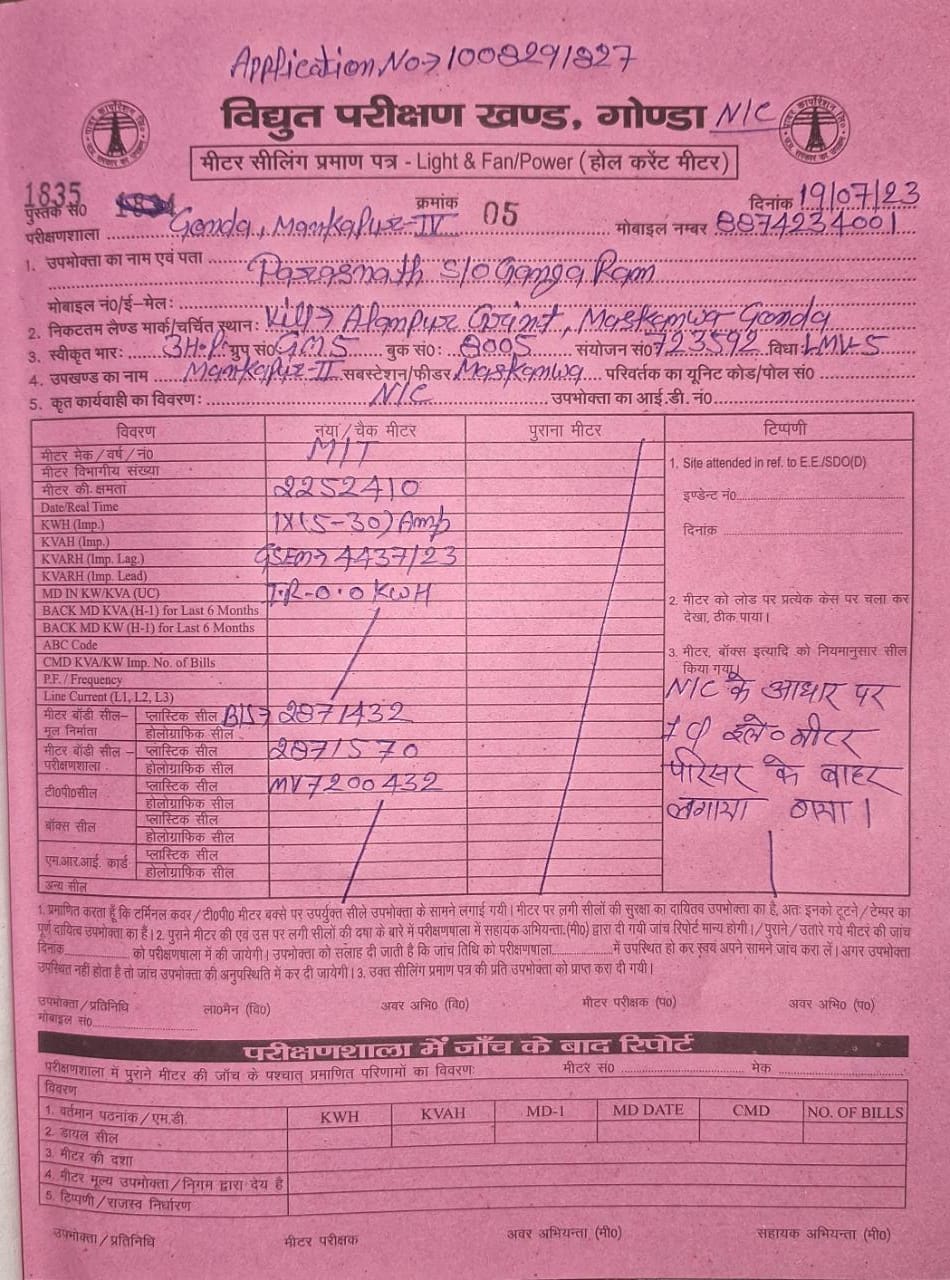 Application No→1008291827
विद्युत परीक्षण खण्ड, गोण्डा N/C
मीटर सीलिंग प्रमाण पत्र - Light & Fan/Power (होल करेंट मीटर)
1835
पुस्तक सं० क्रमांक 05 दिनांक 19/07/23
परीक्षणशाला Gonda, Mankapur-IV मोबाइल नम्बर 8874234001
1. उपभोक्ता का नाम एवं पता Parasnath S/o Ganga Ram
मोबाइल नं०/ई-मेल:
2. निकटतम लैण्ड मार्क/चर्चित स्थान: Vill→ Alanpur Grint, Maskanwa Gonda
3. स्वीकृत भार: 3H.P. ग्रुप सं० GMS बुक सं०: 8005 संयोजन सं० 723592 विधा LMV-5
4. उपखण्ड का नाम Mankapur-II सबस्टेशन/फीडर Maskanwa परिवर्तक का यूनिट कोड/पोल सं०
5. कृत कार्यवाही का विवरण: N/C उपभोक्ता का आई.डी. नं०
विवरण नया/चैक मीटर पुराना मीटर टिप्पणी
मीटर मेक/वर्ष/नं० MIT
मीटर विभागीय संख्या
मीटर की क्षमता 2252410
Date/Real Time
KWH (Imp.) 1X(5-30)Amp
KVAH (Imp.)
KVARH (Imp. Lag.) GSEM→4437/23
KVARH (Imp. Lead)
MD IN KW/KVA (UC) I.R-0.0KWH
BACK MD KVA (H-1) for Last 6 Months
BACK MD KW (H-1) for Last 6 Months
ABC Code
CMD KVA/KW Imp. No. of Bills
P.F. / Frequency
Line Current (L1, L2, L3)
मीटर बॉडी सील- प्लास्टिक सील B/S→2871432
मूल निर्माता होलोग्राफिक सील
मीटर बॉडी सील - प्लास्टिक सील 2871570
परीक्षणशाला होलोग्राफिक सील
टी०पी०सील प्लास्टिक सील MV7200432
होलोग्राफिक सील
बॉक्स सील प्लास्टिक सील
होलोग्राफिक सील
एम.आर.आई. कार्ड प्लास्टिक सील
होलोग्राफिक सील
अन्य सील
1. Site attended in ref. to E.E./SDO(D)
इण्डेन्ट नं०
दिनांक
2. मीटर को लोड पर प्रत्येक केस पर चला कर
देखा, ठीक पाया।
3. मीटर, बॉक्स इत्यादि को नियमानुसार सील
किया गया।
N/C के आधार पर
इले० मीटर
परिसर के बाहर
लगाया गया।
1. प्रमाणित करता हूँ कि टर्मिनल कवर/टी०पी० मीटर बक्से पर उपर्युक्त सीले उपभोक्ता के सामने लगाई गयी। मीटर पर लगी सीलों की सुरक्षा का दायित्व उपभोक्ता का है, अतः इनको टूटने/टेम्पर का
पूर्ण दायित्व उपभोक्ता का हैं। 2. पुराने मीटर की एवं उस पर लगी सीलों की दषा के बारे में परीक्षणषाला में सहायक अभियन्ता.(मी०) द्वारा दी गयी जांच रिपोर्ट मान्य होगी।/पुराने/उतारे गये मीटर की जांच
दिनांक को परीक्षणशाला में की जायेगी। उपभोक्ता को सलाह दी जाती है कि जांच तिथि को परीक्षणषाला में उपस्थित हो कर स्वयं अपने सामने जांच करा लें। अगर उपभोक्ता
उपस्थित नहीं होता है तो जांच उपभोक्ता की अनुपस्थिति में कर दी जायेगी। 3. उक्त सीलिंग प्रमाण पत्र की प्रति उपभोक्ता को प्राप्त करा दी गयी।
उपभोक्ता/प्रतिनिधि ला०मैन (वि०) अवर अभि० (वि०) मीटर परीक्षक (प०) अवर अभि० (प०)
मोबाइल सं०
परीक्षणशाला में जाँच के बाद रिपोर्ट
परीक्षणशाला में पुराने मीटर की जाँच के पश्चात् प्रमाणित परिणामों का विवरण: मीटर सं० मेक
विवरण
1. वर्तमान पठनांक/एम.डी. KWH KVAH MD-1 MD DATE CMD NO. OF BILLS
2. डायल सील
3. मीटर की दशा
4. मीटर मूल्य उपभोक्ता/निगम द्वारा देय है
5. टिप्पणी/राजस्व निर्धारण
उपभोक्ता/प्रतिनिधि मीटर परीक्षक अवर अभियन्ता (मी०) सहायक अभियन्ता (मी०)